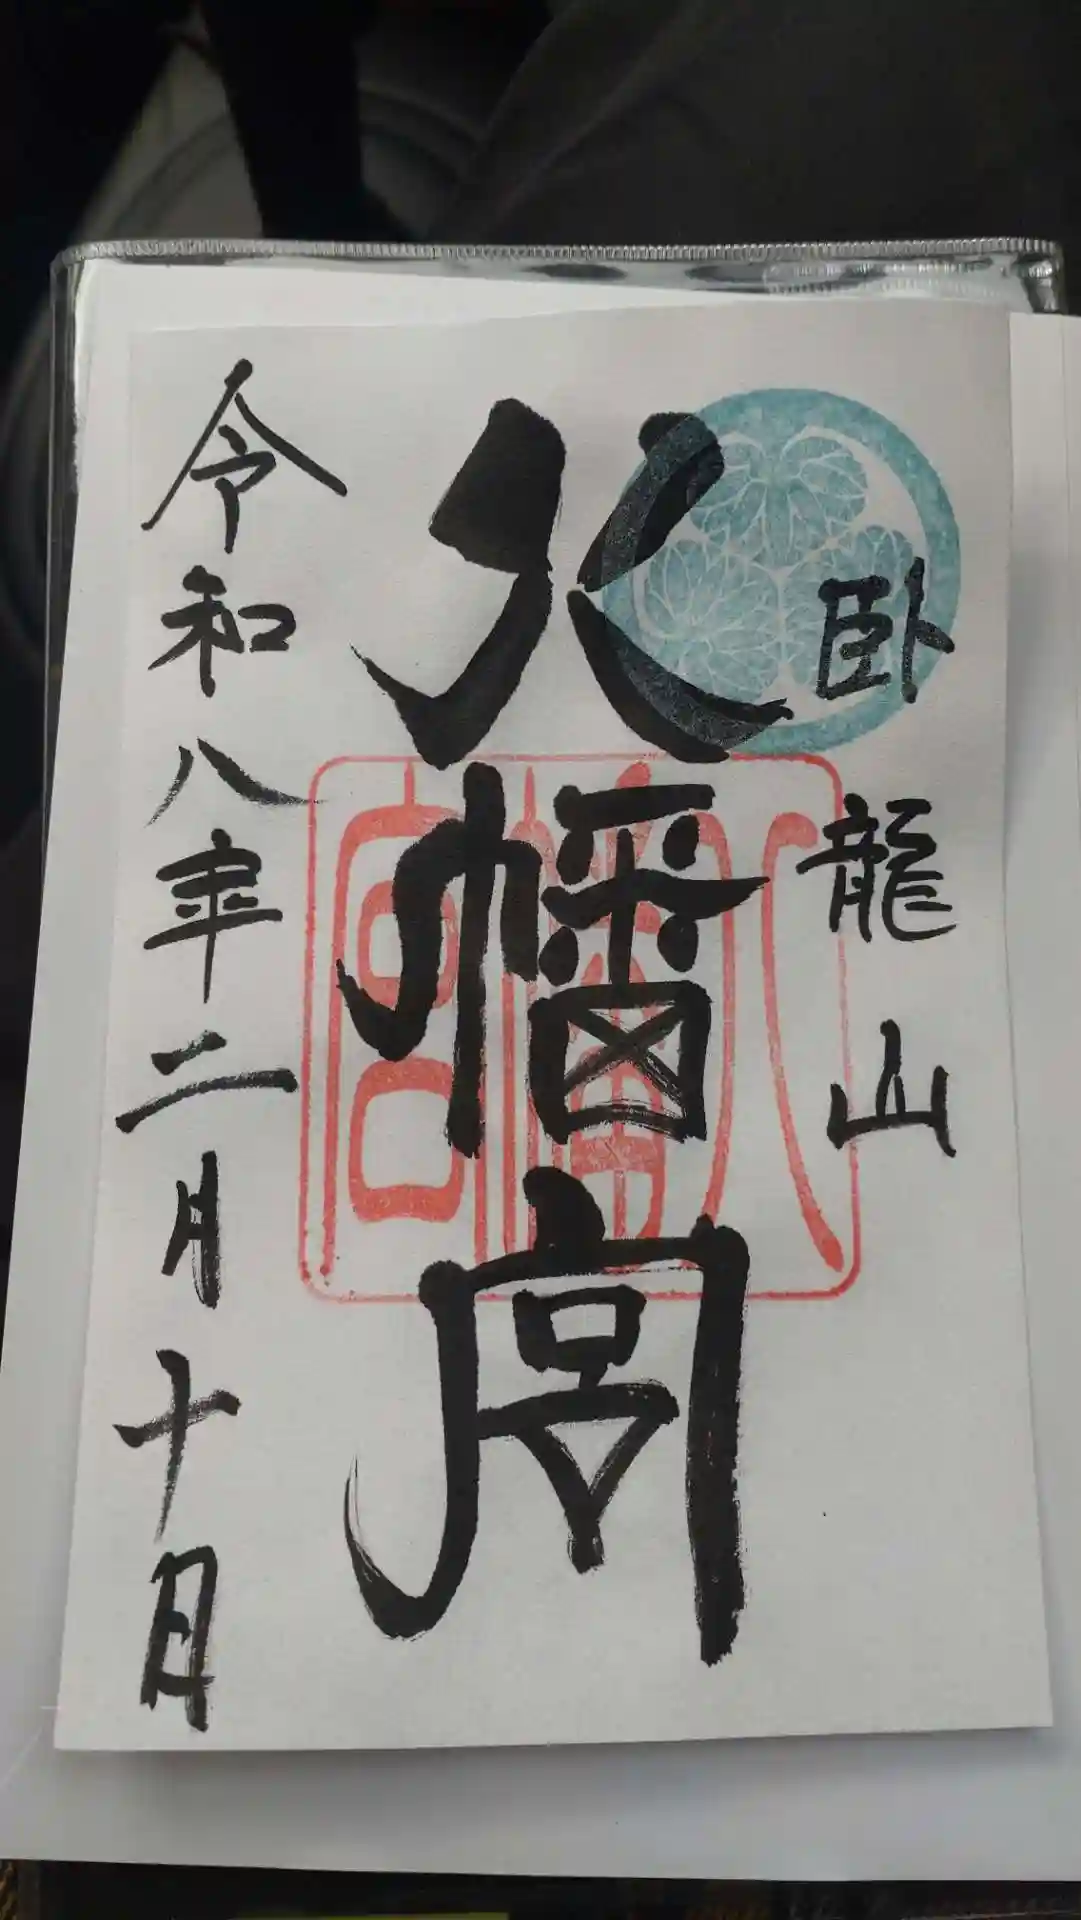 臥龍山
八幡宮
令和八年二月十日
八幡宮